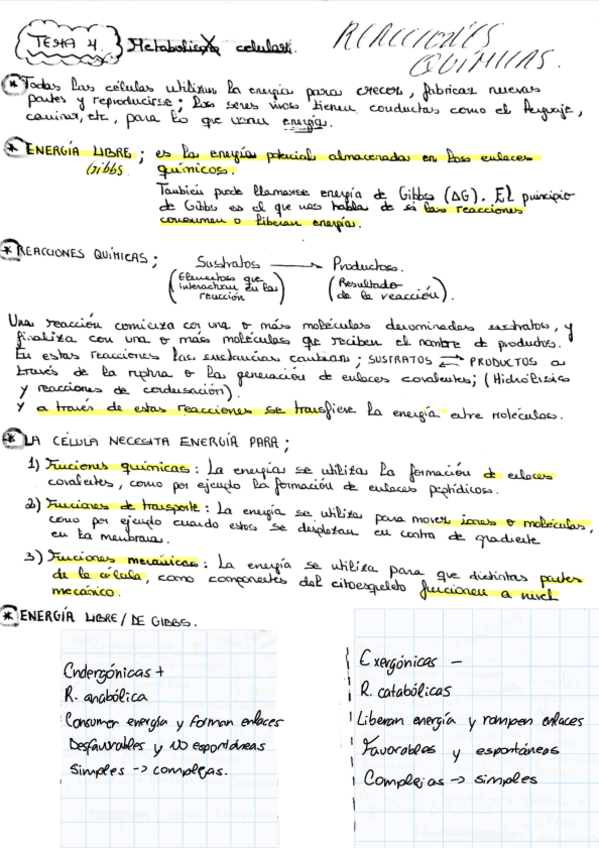 TEMA 4 Metabolismo celular. REACCIONES
QUÍMICAS.
* Todas las células utilizan la energía para crecer, fabricar nuevas
partes y reproducirse; los seres vivos tienen conductas como el lenguaje,
caminar, etc, para lo que usan energía.
* ENERGÍA LIBRE; es la energía potencial almacenada en los enlaces
Gibbs químicos.
También puede llamarse energía de Gibbs (ΔG). El principio
de Gibbs es el que nos habla de si las reacciones
consumen o liberan energía.
* REACCIONES QUÍMICAS; Sustratos → Productos.
(Elementos que interactúan en la reacción) (Resultado de la reacción).
Una reacción comienza con una o más moléculas denominadas sustratos, y
finaliza con una o más moléculas que reciben el nombre de productos.
En estas reacciones las sustancias cambian; SUSTRATOS ⇄ PRODUCTOS a
través de la ruptura o la generación de enlaces covalentes; (Hidrólisis
y reacciones de condensación).
Y a través de estas reacciones se transfiere la energía entre moléculas.
* LA CÉLULA NECESITA ENERGÍA PARA;
1) Funciones químicas: La energía se utiliza la formación de enlaces
covalentes, como por ejemplo la formación de enlaces peptídicos.
2) Funciones de transporte: La energía se utiliza para mover iones o moléculas,
como por ejemplo cuando estos se desplazan en contra de gradiente
en la membrana.
3) Funciones mecánicas: La energía se utiliza para que distintas partes
de la célula, como componentes del citoesqueleto funcionen a nivel
mecánico.
* ENERGÍA LIBRE/DE GIBBS.
Endergónicas +
R. anabólica
Consumen energía y forman enlaces
Desfavorables y no espontáneas
Simples → complejas.
Exergónicas −
R. catabólicas
Liberan energía y rompen enlaces
Favorables y espontáneas
Complejas → simples